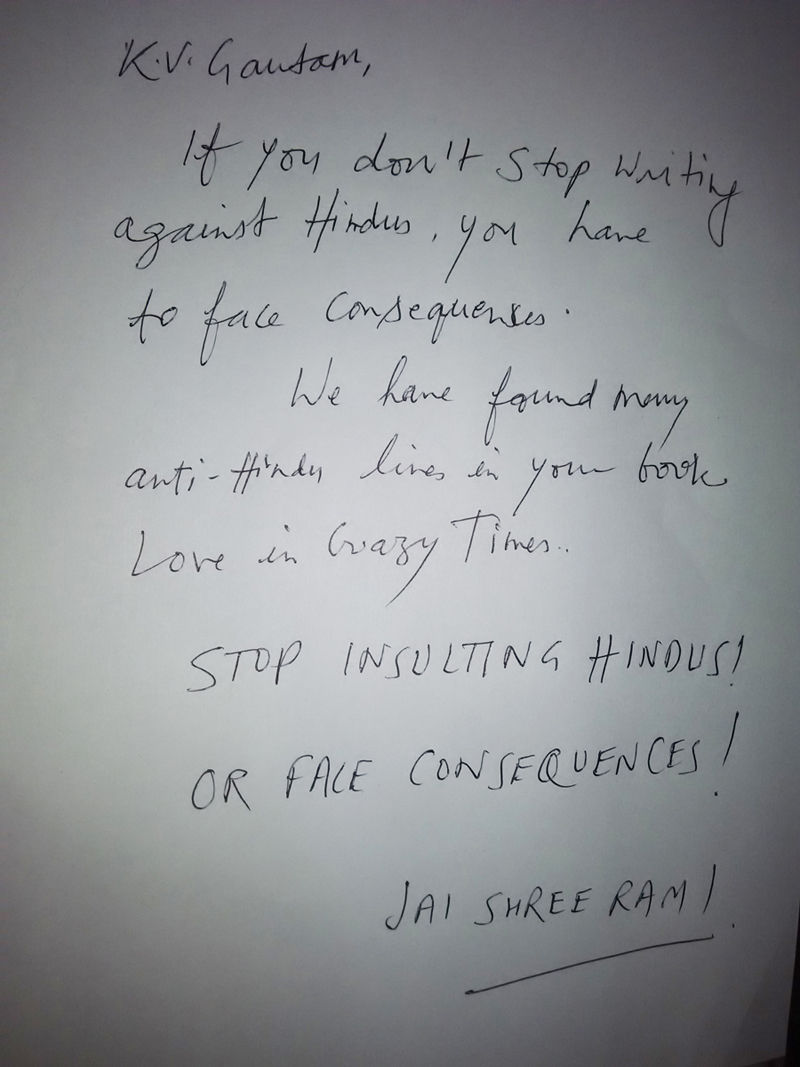 K.V. Gautam,
If you don't stop writing
against Hindus, you have
to face consequences.
We have found many
anti-Hindu lines in your book
Love in Crazy Times..
STOP INSULTING HINDUS!
OR FACE CONSEQUENCES!
JAI SHREE RAM!